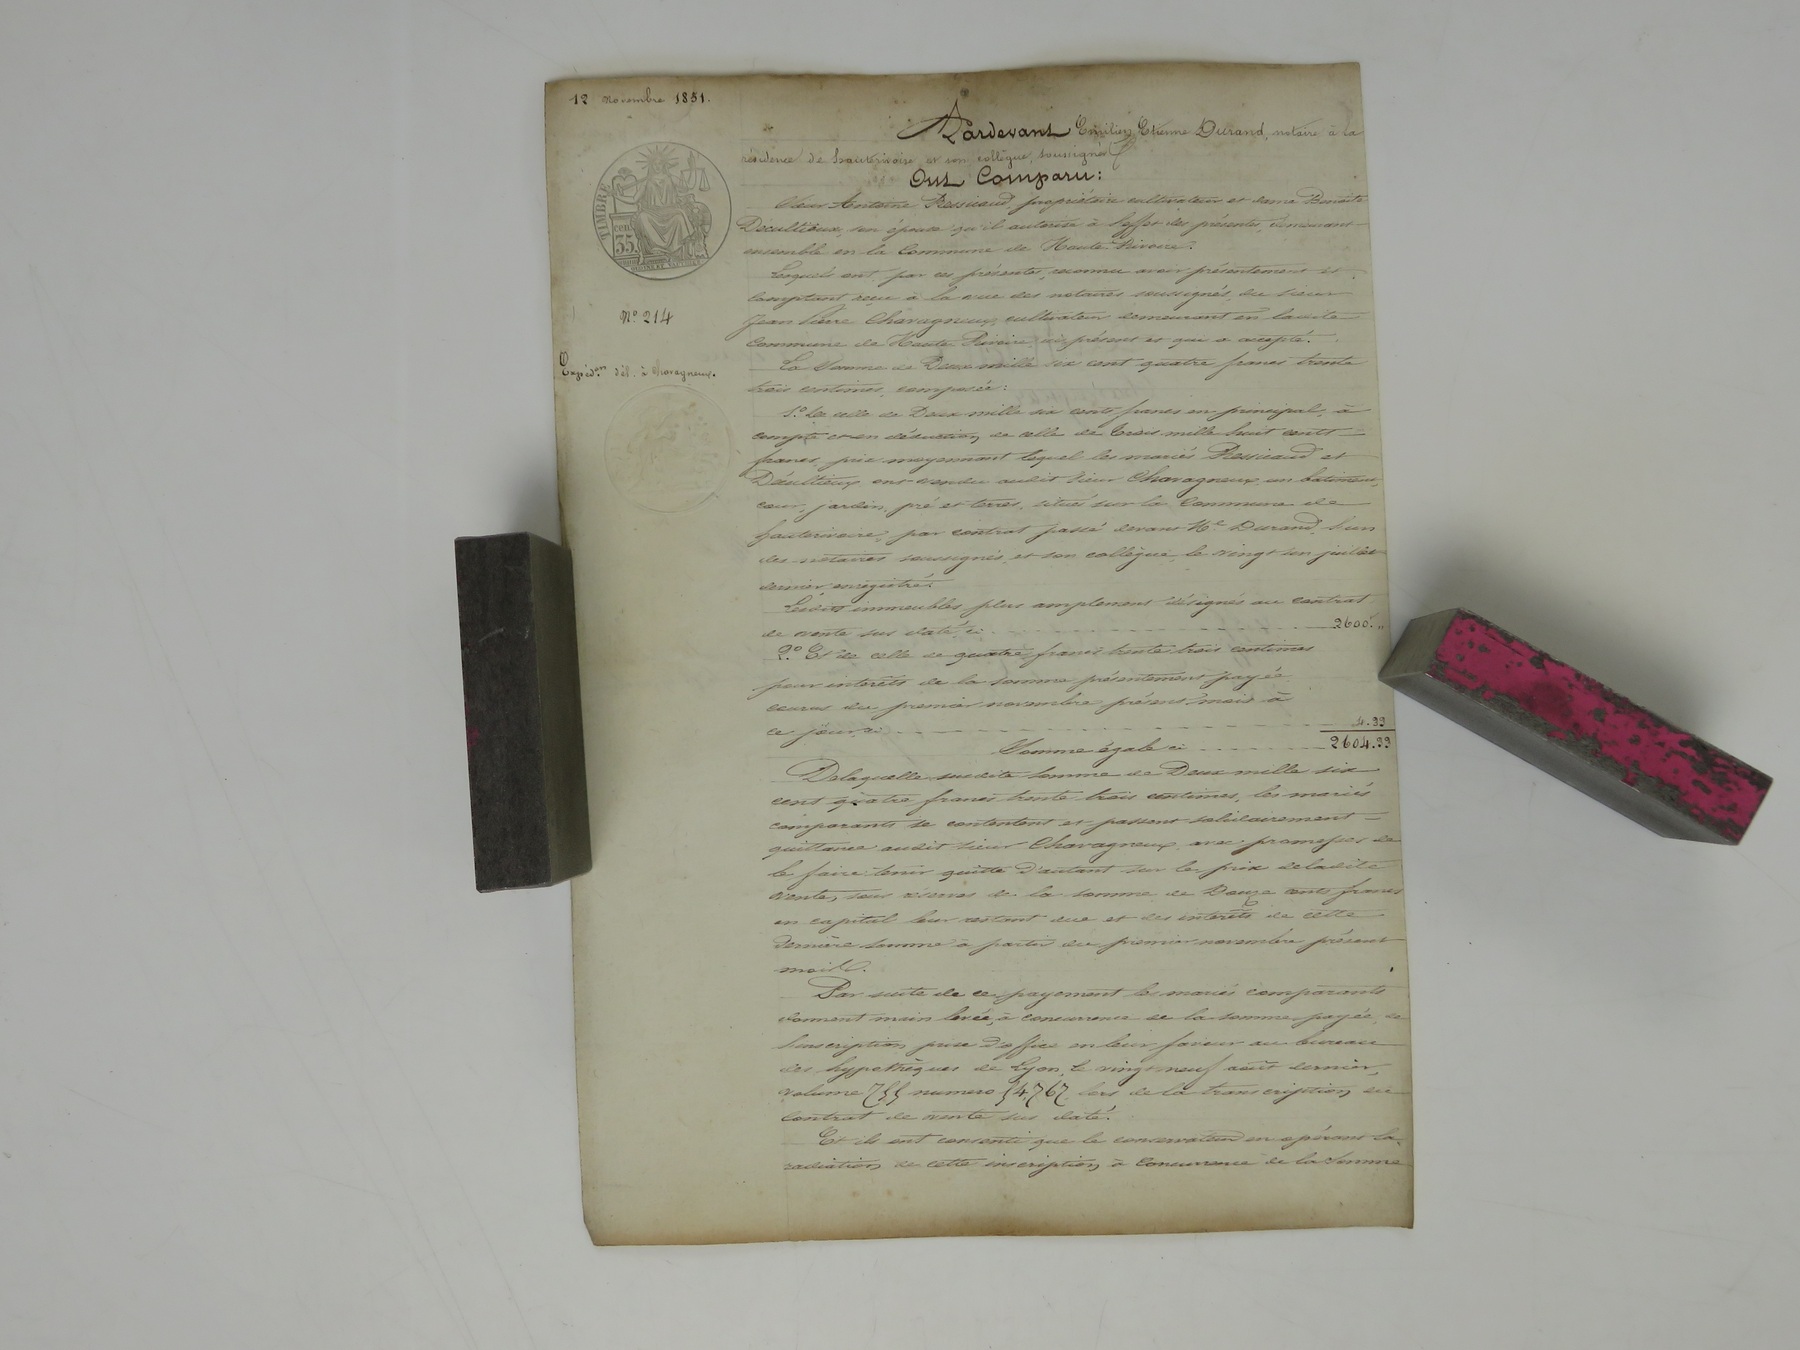 12 novembre 1851.
TIMBRE
cent.
35
N° 214
Expéd.on dél. à Chavagneux.
Pardevant Emilien Etienne Durand, notaire à la
résidence de hauterivoire et son collègue, soussignés
Ont Comparu:
Sieur Antoine Ressicaud, propriétaire cultivateur et dame Benoite
Décultieux, son épouse qu'il autorise à l'effet des présentes, demeurant
ensemble en la Commune de Haute Rivoire.
Lesquels ont, par ces présentes, reconnu avoir présentement et
comptant reçu à la vue des notaires soussignés, du sieur
Jean Pierre Chavagneux, cultivateur demeurant en ladite
Commune de Haute Rivoire, ici présent et qui a accepté.
La Somme de Deux mille six cent quatre francs trente
trois centimes, composée:
1.° De celle de Deux mille six cents francs en principal, à
compte et en déduction de celle de Trois mille huit cents
francs, prix moyennant lequel les mariés Ressicaud et
Décultieux ont vendu audit sieur Chavagneux un batiment,
cour, jardin, pré et terres, situés sur la Commune de
hauterivoire, par contrat passé devant Me Durand, l'un
des notaires soussignés, et son collègue, le vingt un juillet
dernier enregistré.
Lesdits immeubles plus amplement désignés au contrat
de vente sus daté, ci 2600. "
2.° Et de celle de quatre francs trente trois centimes
pour intérêts de la somme présentement payée
courus du premier novembre présent mois à
ce jour, ci 4.33
Somme égale ci 2604.33
Delaquelle susdite somme de Deux mille six
cent quatre francs trente trois centimes, les mariés
comparants se contentent et passent solidairement
quittance audit sieur Chavagneux avec promesses de
le faire tenir quitte d'autant sur le prix deladite
vente, sous réserves de la somme de Douze cents francs
en capital leur restant due et des intérêts de cette
dernière somme à partir du premier novembre présent
mois.
Par suite de ce payement les mariés comparants
donnent main levée, à concurrence de la somme payée, de
l'inscription prise d'office en leur faveur au bureau
des hypothèques de Lyon, le vingt neuf août dernier,
volume 755 numero 54,767 lors de la transcription du
contrat de vente sus daté.
Et ils ont consenti que le conservateur en opérant la
radiation de cette inscription à concurrence de la somme